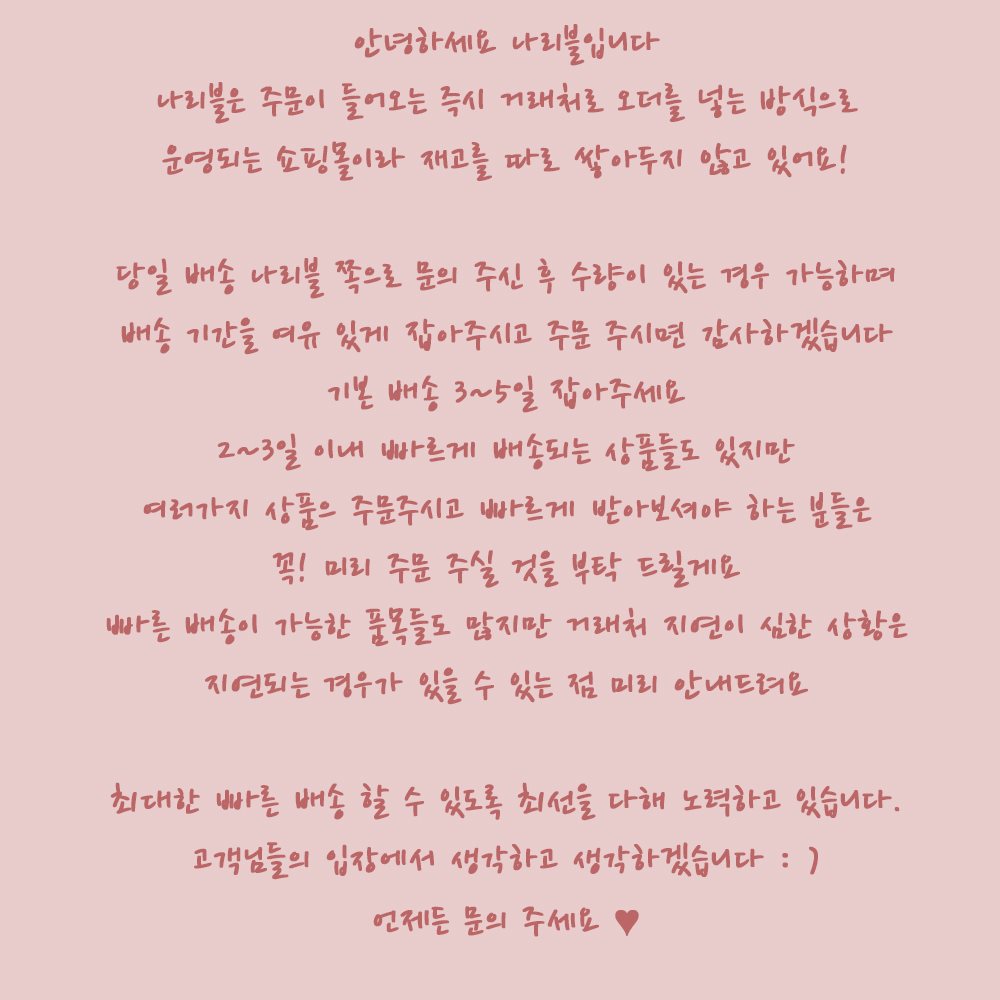 안녕하세요 나리블입니다
나리블은 주문이 들어오는 즉시 거래처로 오더를 넣는 방식으로
운영되는 쇼핑몰이라 재고를 따로 쌓아두지 않고 있어요!
당일 배송 나리블 쪽으로 문의 주신 후 수량이 있는 경우 가능하며
배송 기간을 여유 있게 잡아주시고 주문 주시면 감사하겠습니다
기본 배송 3~5일 잡아주세요
2~3일 이내 빠르게 배송되는 상품들도 있지만
여러가지 상품의 주문주시고 빠르게 받아보셔야 하는 분들은
꼭! 미리 주문 주실 것을 부탁 드릴게요
빠른 배송이 가능한 품목들도 많지만 거래처 지연이 심한 상황은
지연되는 경우가 있을 수 있는 점 미리 안내드려요
최대한 빠른 배송 할 수 있도록 최선을 다해 노력하고 있습니다.
고객님들의 입장에서 생각하고 생각하겠습니다 : )
언제든 문의 주세요 ♥